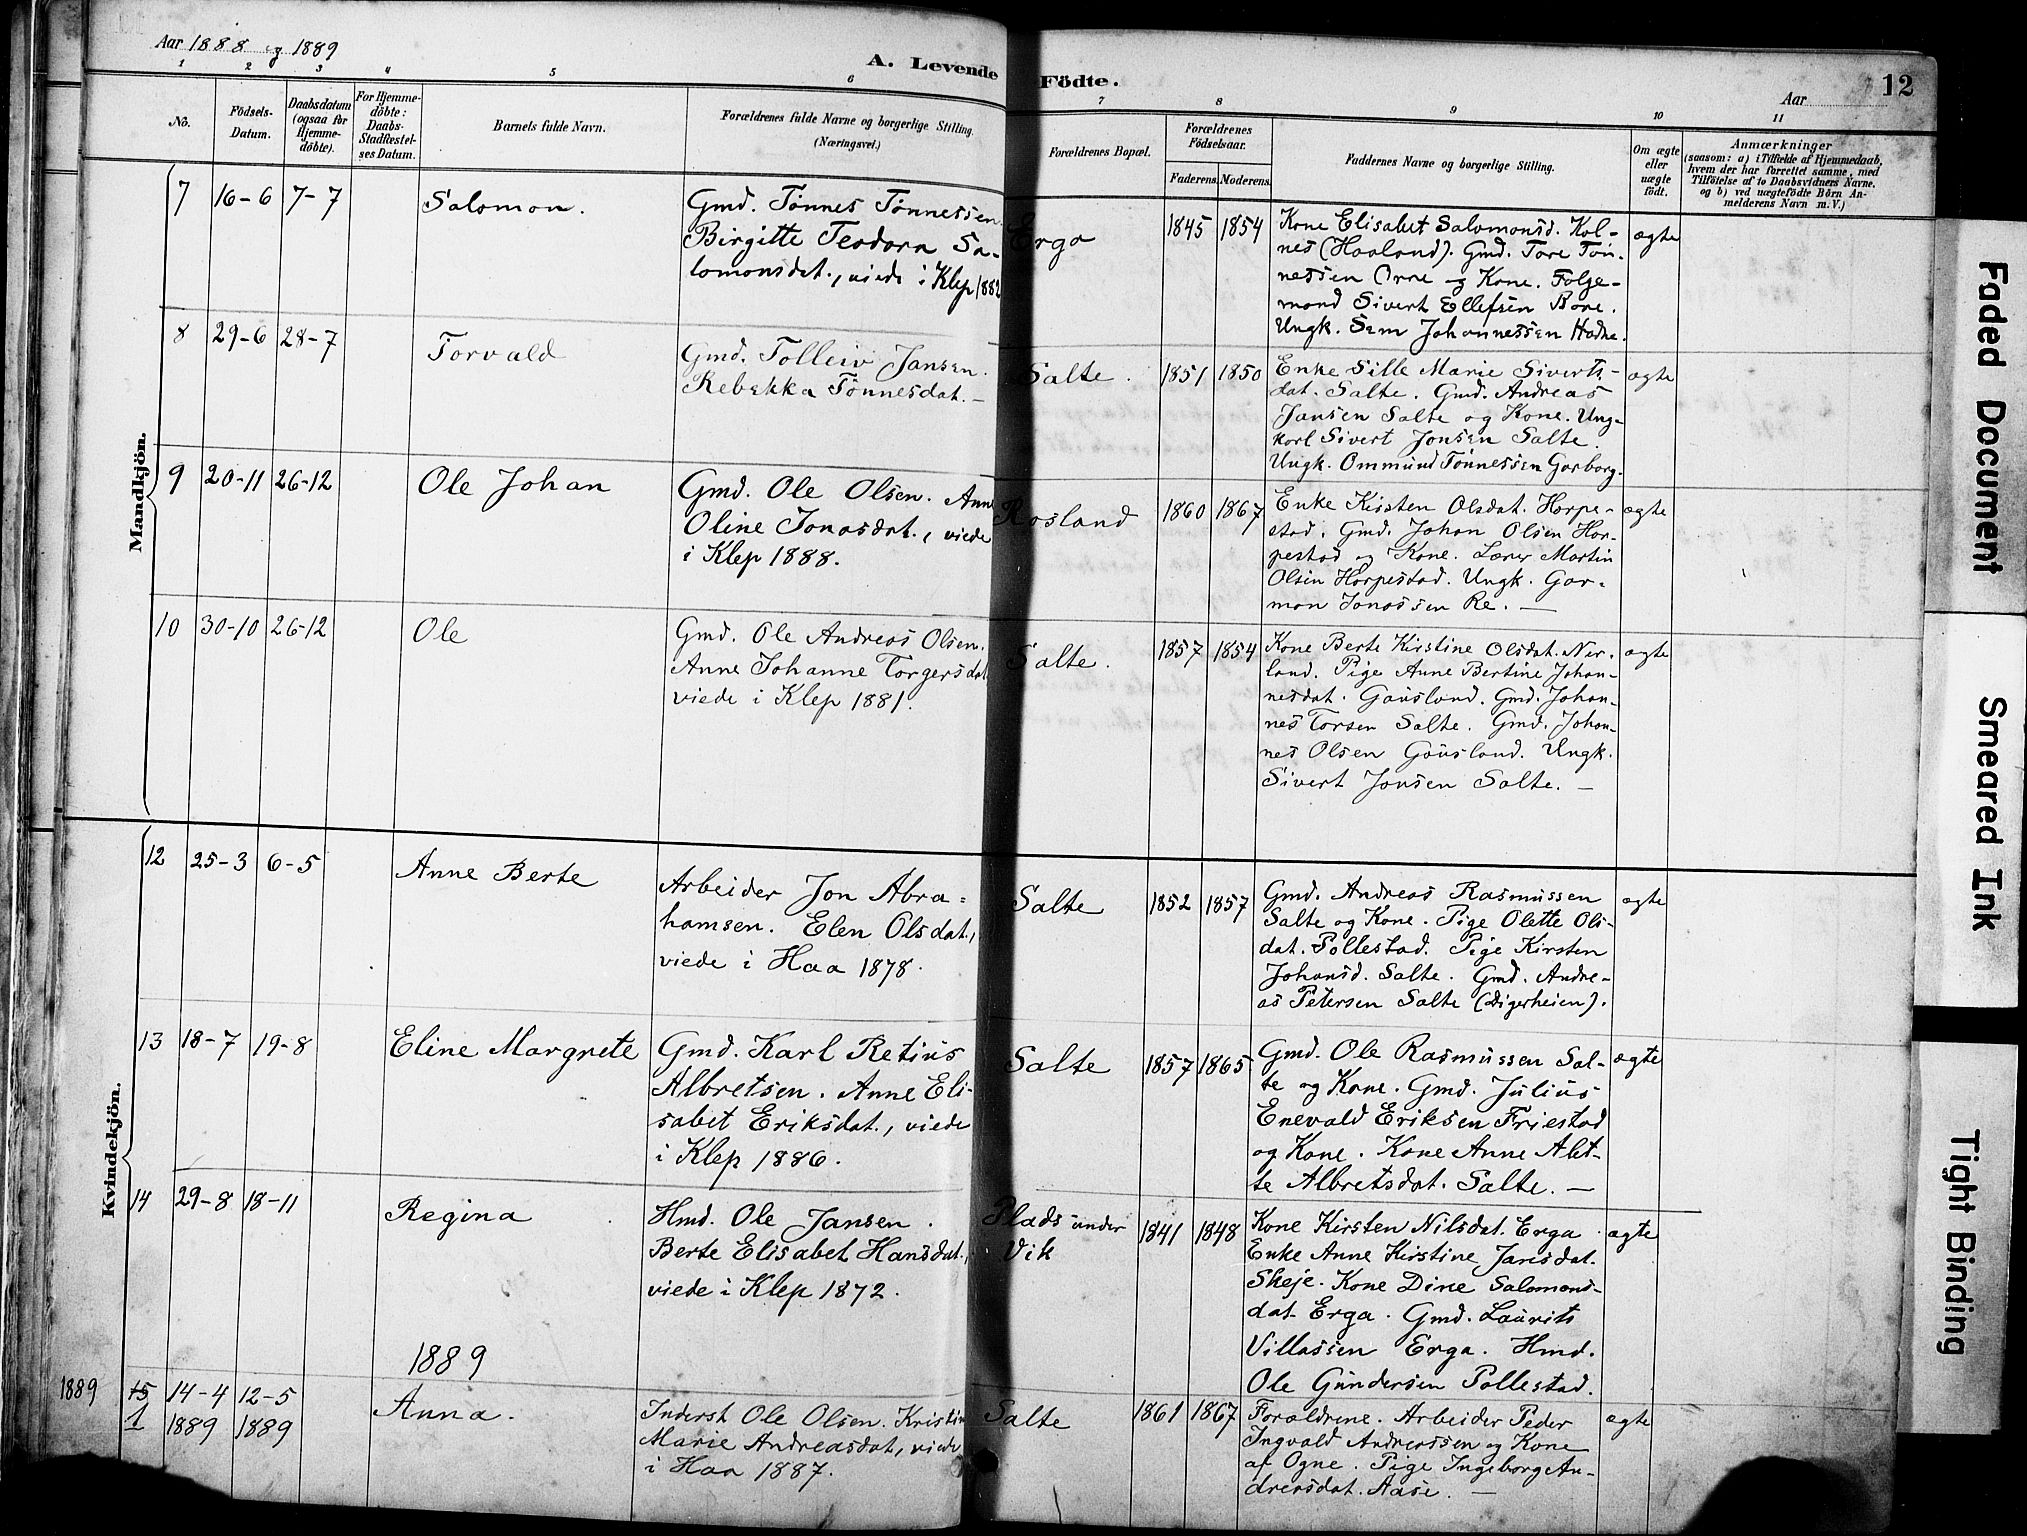 Aar 1888 og 1889
A. Levende Födte.
Aar
12
1 2 3 4 5 6 7 8 9 10 11
No.
Födsels-
Datum.
Daabsdatum
(ogsaa for
Hjemme-
döbte).
For Hjemme-
döbte:
Daabs-
Stadfæstel-
ses Datum.
Barnets fulde Navn.
Forældrenes fulde Navne og borgerlige Stilling.
(Næringsvei.)
Forældrenes Bopæl.
Forældrenes
Födselsaar.
Faderens. Moderens.
Faddernes Navne og borgerlige Stilling.
Om ægte
eller
uægte
født.
Anmærkninger
(saasom: a) i Tilfælde af Hjemmedaab,
hvem der har forrettet samme, med
Tilföielse af to Daabsvidners Navne.
og b) ved uægtefödte Börn An-
melderens Navn m. V.)
Mandkjön.
7 16-6 7-7 Salomon.
Gmd. Tønnes Tønnessen
Birgitte Teodora Sa-
lomonsdat., viede i Klep 1882
Erga 1845 1854
Kone Elisabet Salomonsd. Kol-
nes (Haaland). Gmd. Tore Tøn-
nessen Orre og Kone. Følge-
mand Sivert Ellefsen Bore.
Ungk. Sem Johannessen Hodne.
ægte
8 29-6 28-7 Torvald
Gmd. Tolleiv Jansen.
Rebekka Tønnesdat. —
Salte. 1851 1850
Enke Sille Marie Siverts-
dat. Salte. Gmd. Andreas
Jansen Salte og Kone. Ung-
karl Sivert Jonsen Salte.
Ungk. Ommund Tønnessen Garborg.
ægte
9 20-11 26-12 Ole Johan
Gmd. Ole Olsen. Anne
Oline Jonasdat., viede
i Klep 1888.
Rosland 1860 1867
Enke Kirsten Olsdat. Horpe-
stad. Gmd. Johan Olsen Hor-
pestad og Kone. Lærer Martin
Olsen Horpestad. Ungk. Gar-
mon Jonassen Re. —
ægte
10 30-10 26-12 Ole
Gmd. Ole Andreas Olsen.
Anne Johanne Torgersdat.
viede i Klep 1881.
Salte. 1857 1854
Kone Berte Kirstine Olsdat. Ner-
land. Pige Anne Bertine Johan-
nesdat. Gausland. Gmd. Johan-
nes Torsen Salte. Gmd. Johan-
nes Olsen Gausland. Ungk.
Sivert Jonsen Salte. —
ægte
Kvindekjön.
12 25-3 6-5 Anne Berte
Arbeider Jon Abra-
hamsen. Elen Olsdat.,
viede i Haa 1878.
Salte 1852 1857
Gmd. Andreas Rasmussen
Salte og Kone. Pige Olette Ols-
dat. Pollestad. Pige Kirsten
Johansd. Salte. Gmd. Andre-
as Petersen Salte (Digerheien).
ægte
13 18-7 19-8 Eline Margrete
Gmd. Karl Retius
Albretsen. Anne Eli-
sabet Eriksdat., viede
i Klep 1886.
Salte 1857 1865
Gmd. Ole Rasmussen Sal-
te og Kone. Gmd. Julius
Enevald Eriksen Friestad
og Kone. Kone Anne Alet-
te Albretsdat. Salte. —
ægte
14 29-8 18-11 Regina
Hmd. Ole Jansen.
Berte Elisabet Hansdat.,
viede i Klep 1872.
Plads under
Vik
1841 1848
Kone Kirsten Nilsdat. Erga
Enke Anne Kirstine Jansdat.
Skeje. Kone Dine Salomons-
dat. Erga. Gmd. Laurits
Villassen Erga. Hmd.
Ole Gundersen Pollestad.
ægte
1889
1889 15 14-4 12-5 Anna.
1 1889 1889
Inderst Ole Olsen. Kristine
Marie Andreasdat., viede
i Haa 1887.
Salte 1861 1867
Forældrene. Arbeider Peder
Ingvald Andreassen og Kone
af Ogne. Pige Ingeborg An-
dreasdat. Aase. —
ægte
Faded Document
Smeared Ink
Tight Binding